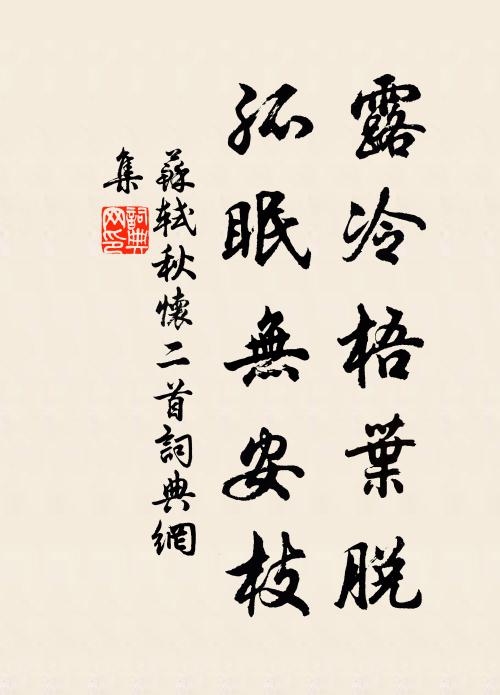 露冷梧葉脱
孤眠無安枝
蘇軾秋懷二首詞典網
集
詞典网印